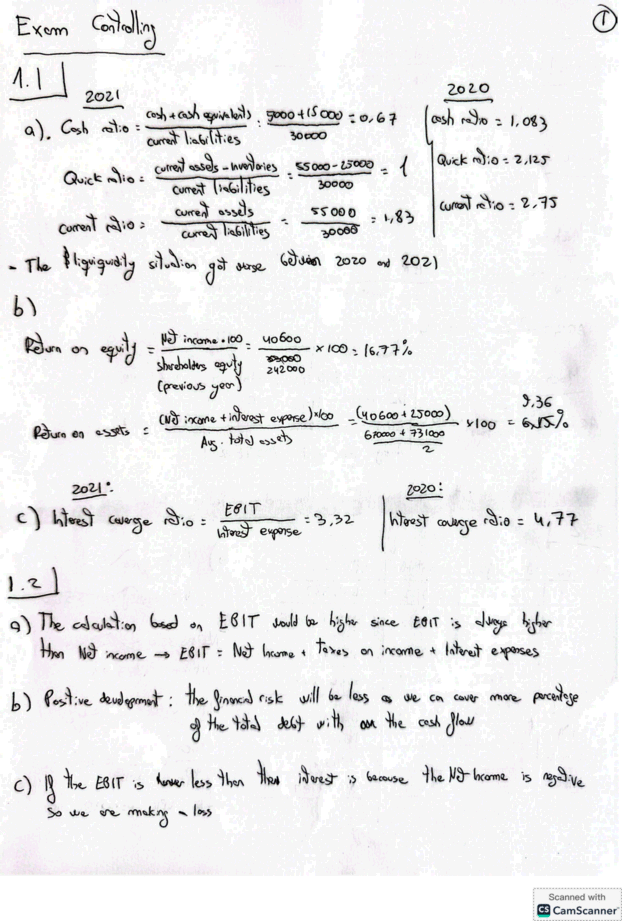 Exam Controlling
1
1.1
2021
2020
a). Cash ratio = cash + cash equivalents / current liabilities : 5000 + 15 000 / 30000 = 0,67
cash ratio = 1,083
Quick ratio = current assets - inventories / current liabilities = 55000 - 25000 / 30000 = 1
Quick ratio = 2,125
current ratio = current assets / current liabilities = 55000 / 30000 = 1,83
current ratio = 2,75
- The liquiguidity situation got worse between 2020 and 2021
b)
Return on equity = Net income · 100 / shareholders equity (previous year) = 40600 / 242000 × 100 = 16,77%
Return on assets = (Net income + interest expense) × 100 / Avg. total assets = (40600 + 25000) / 731000 / 2 × 100 = 9,36 %
2021:
2020:
c) Interest coverge ratio = EBIT / interest expense = 3,32
Interest coverge ratio = 4,77
1.2
a) The calculation based on EBIT would be higher since EBIT is always higher
than Net income → EBIT = Net Income + Taxes on income + Interest expenses
b) Positive development: the financial risk will be less as we can cover more percentage
of the total debt with the cash flow
c) If the EBIT is less than interest is because the Net Income is negative
So we are making a loss
Scanned with
CS CamScanner